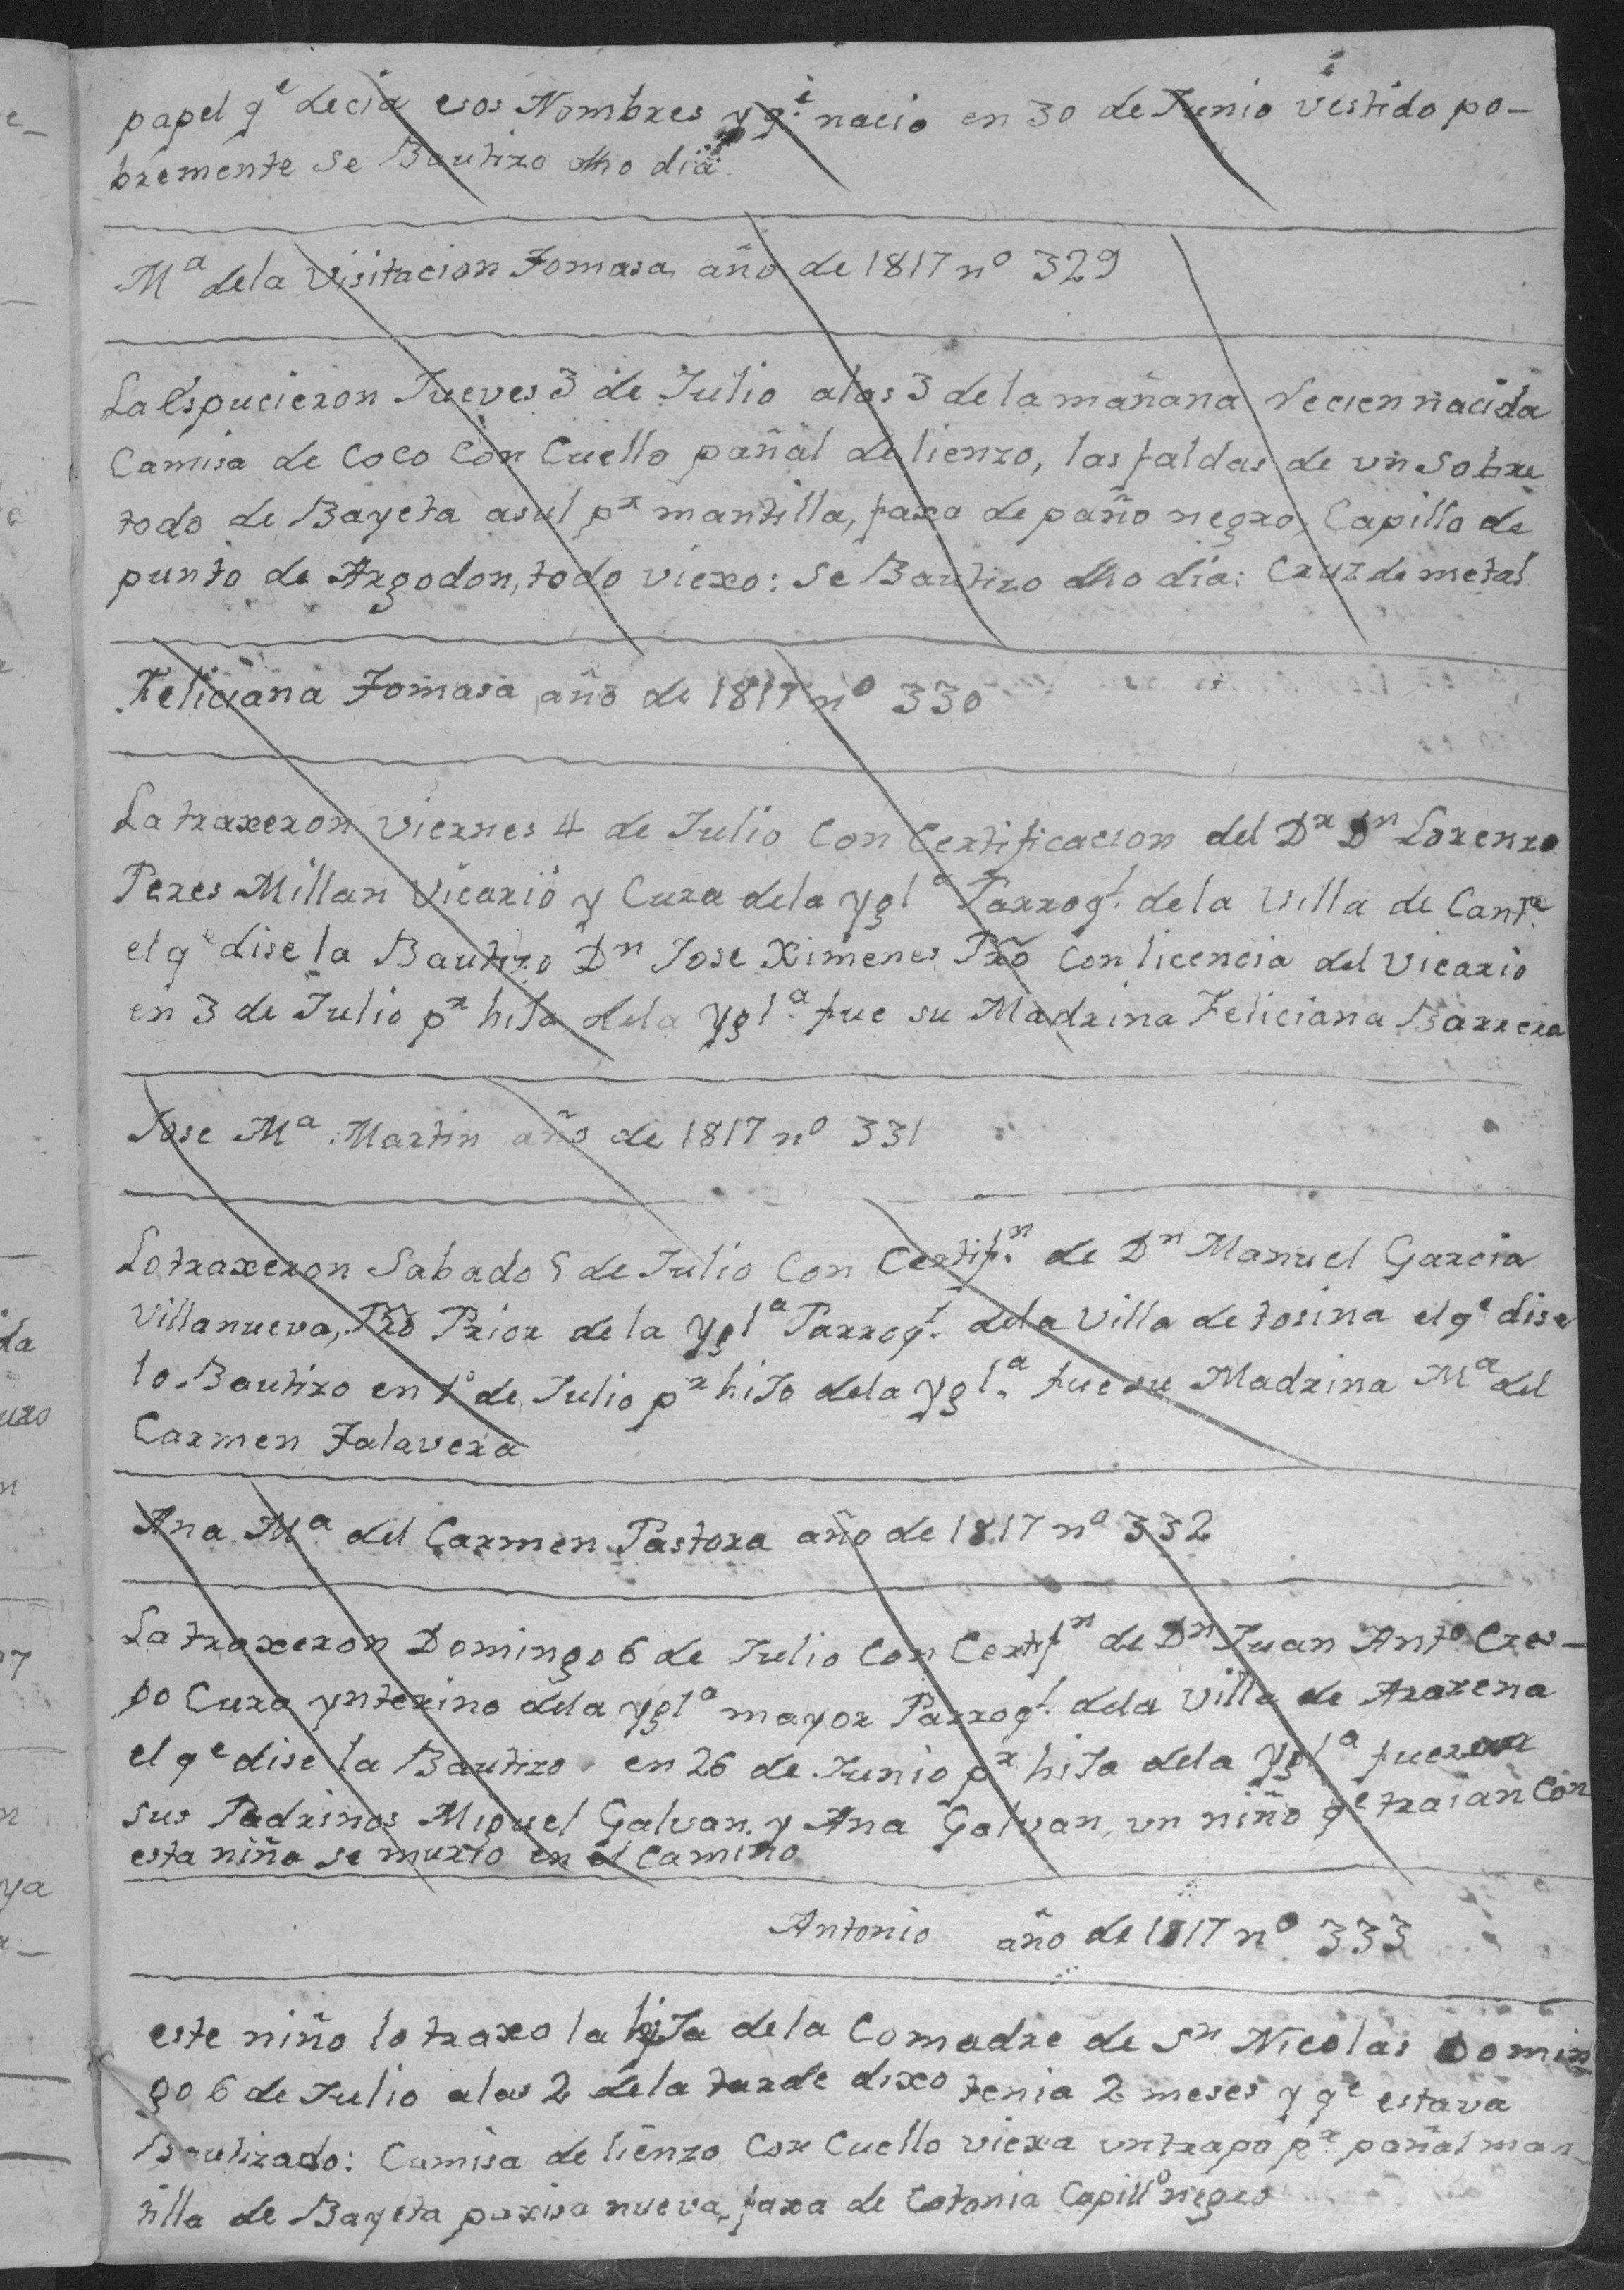 papel qe decia esos Nombres y qe nacio en 30 de Junio vestido po-
bremente Se Bautizo dho dia
Ma dela Visitacion Tomasa año de 1817 no 329
La Espucieron Jueves 3 de Julio alas 3 de la mañana Reciennacida
Camisa de Coco Con Cuello pañal de lienzo, las faldas de vn Sobre
todo de Bayeta asul pr mantilla, faxa de paño negro, Capillo de
punto de Argodon, todo viexo: Se Bautizo dho dia: Cruz de metal
Feliciana Tomasa año de 1817 no 330
La traxeron Viernes 4 de Julio Con Certificacion del Dr Dn Lorenzo
Peres Millan Vicario y Cura dela ygla Parroql. de la Villa de Cante
el qe dise la Bautizo Dn Jose Ximenes Pro Con licencia del Vicario
en 3 de Julio pr hija dela Ygla. fue su Madrina Feliciana Barrera
Jose Ma. Martin año de 1817 no 331
Lo traxeron Sabado 5 de Julio Con Certifn. de Dn Manuel Garcia
Villanueva, Pro Prior de la Ygla Parroql. dela Villa de tosina el qe dise
lo Bautizo en 1o de Julio pr hijo dela ygla. fue su Madrina Ma del
Carmen Talavera
Ana Ma del Carmen Pastora año de 1817 no 332
La traxeron Domingo 6 de Julio Con Certifn de Dn Juan Anto Cres-
po Cura ynterino dela ygla mayor Parroql. dela Villa de Arazena
el qe dise la Bautizo en 26 de Junio pr hija dela Ygla fueron
sus Padrinos Miguel Galvan. y Ana Galvan, vn niño qe traian Con
esta niña se murio en el Camino
Antonio año de 1817 no 333
este niño lo traxo la hija dela Comadre de Sn Nicolas Domin
go 6 de Julio alas 2 dela tarde dixo tenia 2 meses y qe estava
Bautizado: Camisa de lienzo Con Cuello viexa vn trapo pr pañal man-
tilla de Bayeta paxisa nueva, faxa de Cotonia Capillo negro